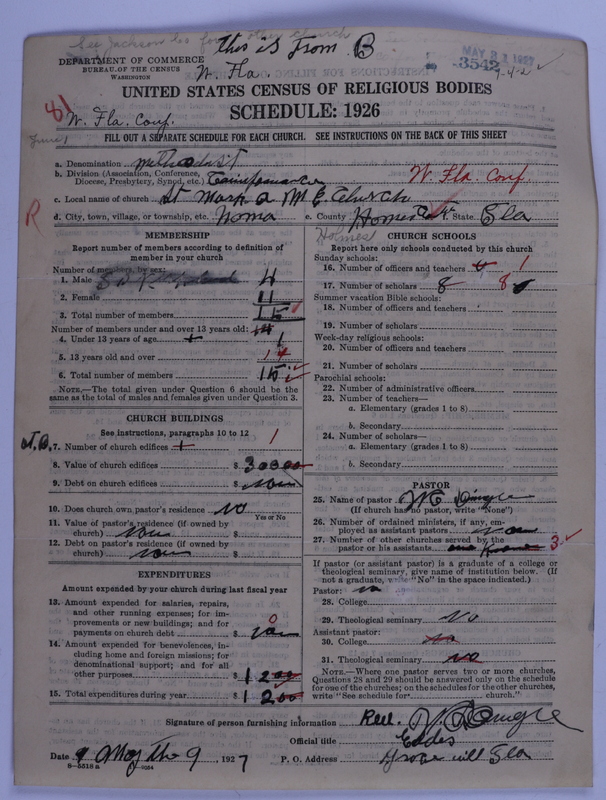 See Jackson Co for other church
this is From B
DEPARTMENT OF COMMERCE
BUREAU OF THE CENSUS
WASHINGTON
W. Fla.
MAY 31 1927
3542
9-4-2 ✓
UNITED STATES CENSUS OF RELIGIOUS BODIES
SCHEDULE: 1926
81
W. Fla. Conf.
FILL OUT A SEPARATE SCHEDULE FOR EACH CHURCH. SEE INSTRUCTIONS ON THE BACK OF THIS SHEET
a. Denomination Methodist
b. Division (Association, Conference, Diocese, Presbytery, Synod, etc.) W. Fla. Conf.
c. Local name of church St Mark a M E Church
R
d. City, town, village, or township, etc. Noma e. County Holmes State Fla
Holmes
MEMBERSHIP
Report number of members according to definition of member in your church
Number of members, by sex:
1. Male 4
2. Female 11
3. Total number of members 15
Number of members under and over 13 years old: 14
4. Under 13 years of age 1
5. 13 years old and over 14
6. Total number of members 15 ✓
NOTE.—The total given under Question 6 should be the same as the total of males and females given under Question 3.
CHURCH BUILDINGS
See instructions, paragraphs 10 to 12
7. Number of church edifices 1
8. Value of church edifices $ 300.00
9. Debt on church edifices $ non
10. Does church own pastor's residence No
Yes or No
11. Value of pastor's residence (if owned by church) non $
12. Debt on pastor's residence (if owned by church) non $
EXPENDITURES
Amount expended by your church during last fiscal year
13. Amount expended for salaries, repairs, and other running expenses; for improvements or new buildings; and for payments on church debt $ 0 non
14. Amount expended for benevolences, including home and foreign missions; for denominational support; and for all other purposes $ 1200
15. Total expenditures during year $ 1200
CHURCH SCHOOLS
Report here only schools conducted by this church
Sunday schools:
16. Number of officers and teachers 1
17. Number of scholars 8 8
Summer vacation Bible schools:
18. Number of officers and teachers
19. Number of scholars
Week-day religious schools:
20. Number of officers and teachers
21. Number of scholars
Parochial schools:
22. Number of administrative officers
23. Number of teachers—
a. Elementary (grades 1 to 8)
b. Secondary
24. Number of scholars—
a. Elementary (grades 1 to 8)
b. Secondary
PASTOR
25. Name of pastor
(If church has no pastor, write "None")
26. Number of ordained ministers, if any, employed as assistant pastors non
27. Number of other churches served by the pastor or his assistants 3 ✓
If pastor (or assistant pastor) is a graduate of a college or theological seminary, give name of institution below. (If not a graduate, write "No" in the space indicated.)
Pastor: no
28. College
29. Theological seminary No
Assistant pastor:
30. College no
31. Theological seminary no
NOTE.—Where one pastor serves two or more churches, Questions 28 and 29 should be answered only on the schedule for one of the churches; on the schedules for the other churches, write "See schedule for church."
Signature of person furnishing information Rev.
Official title
Date 9 May the 9, 1927 P. O. Address Fla
8-5518 a